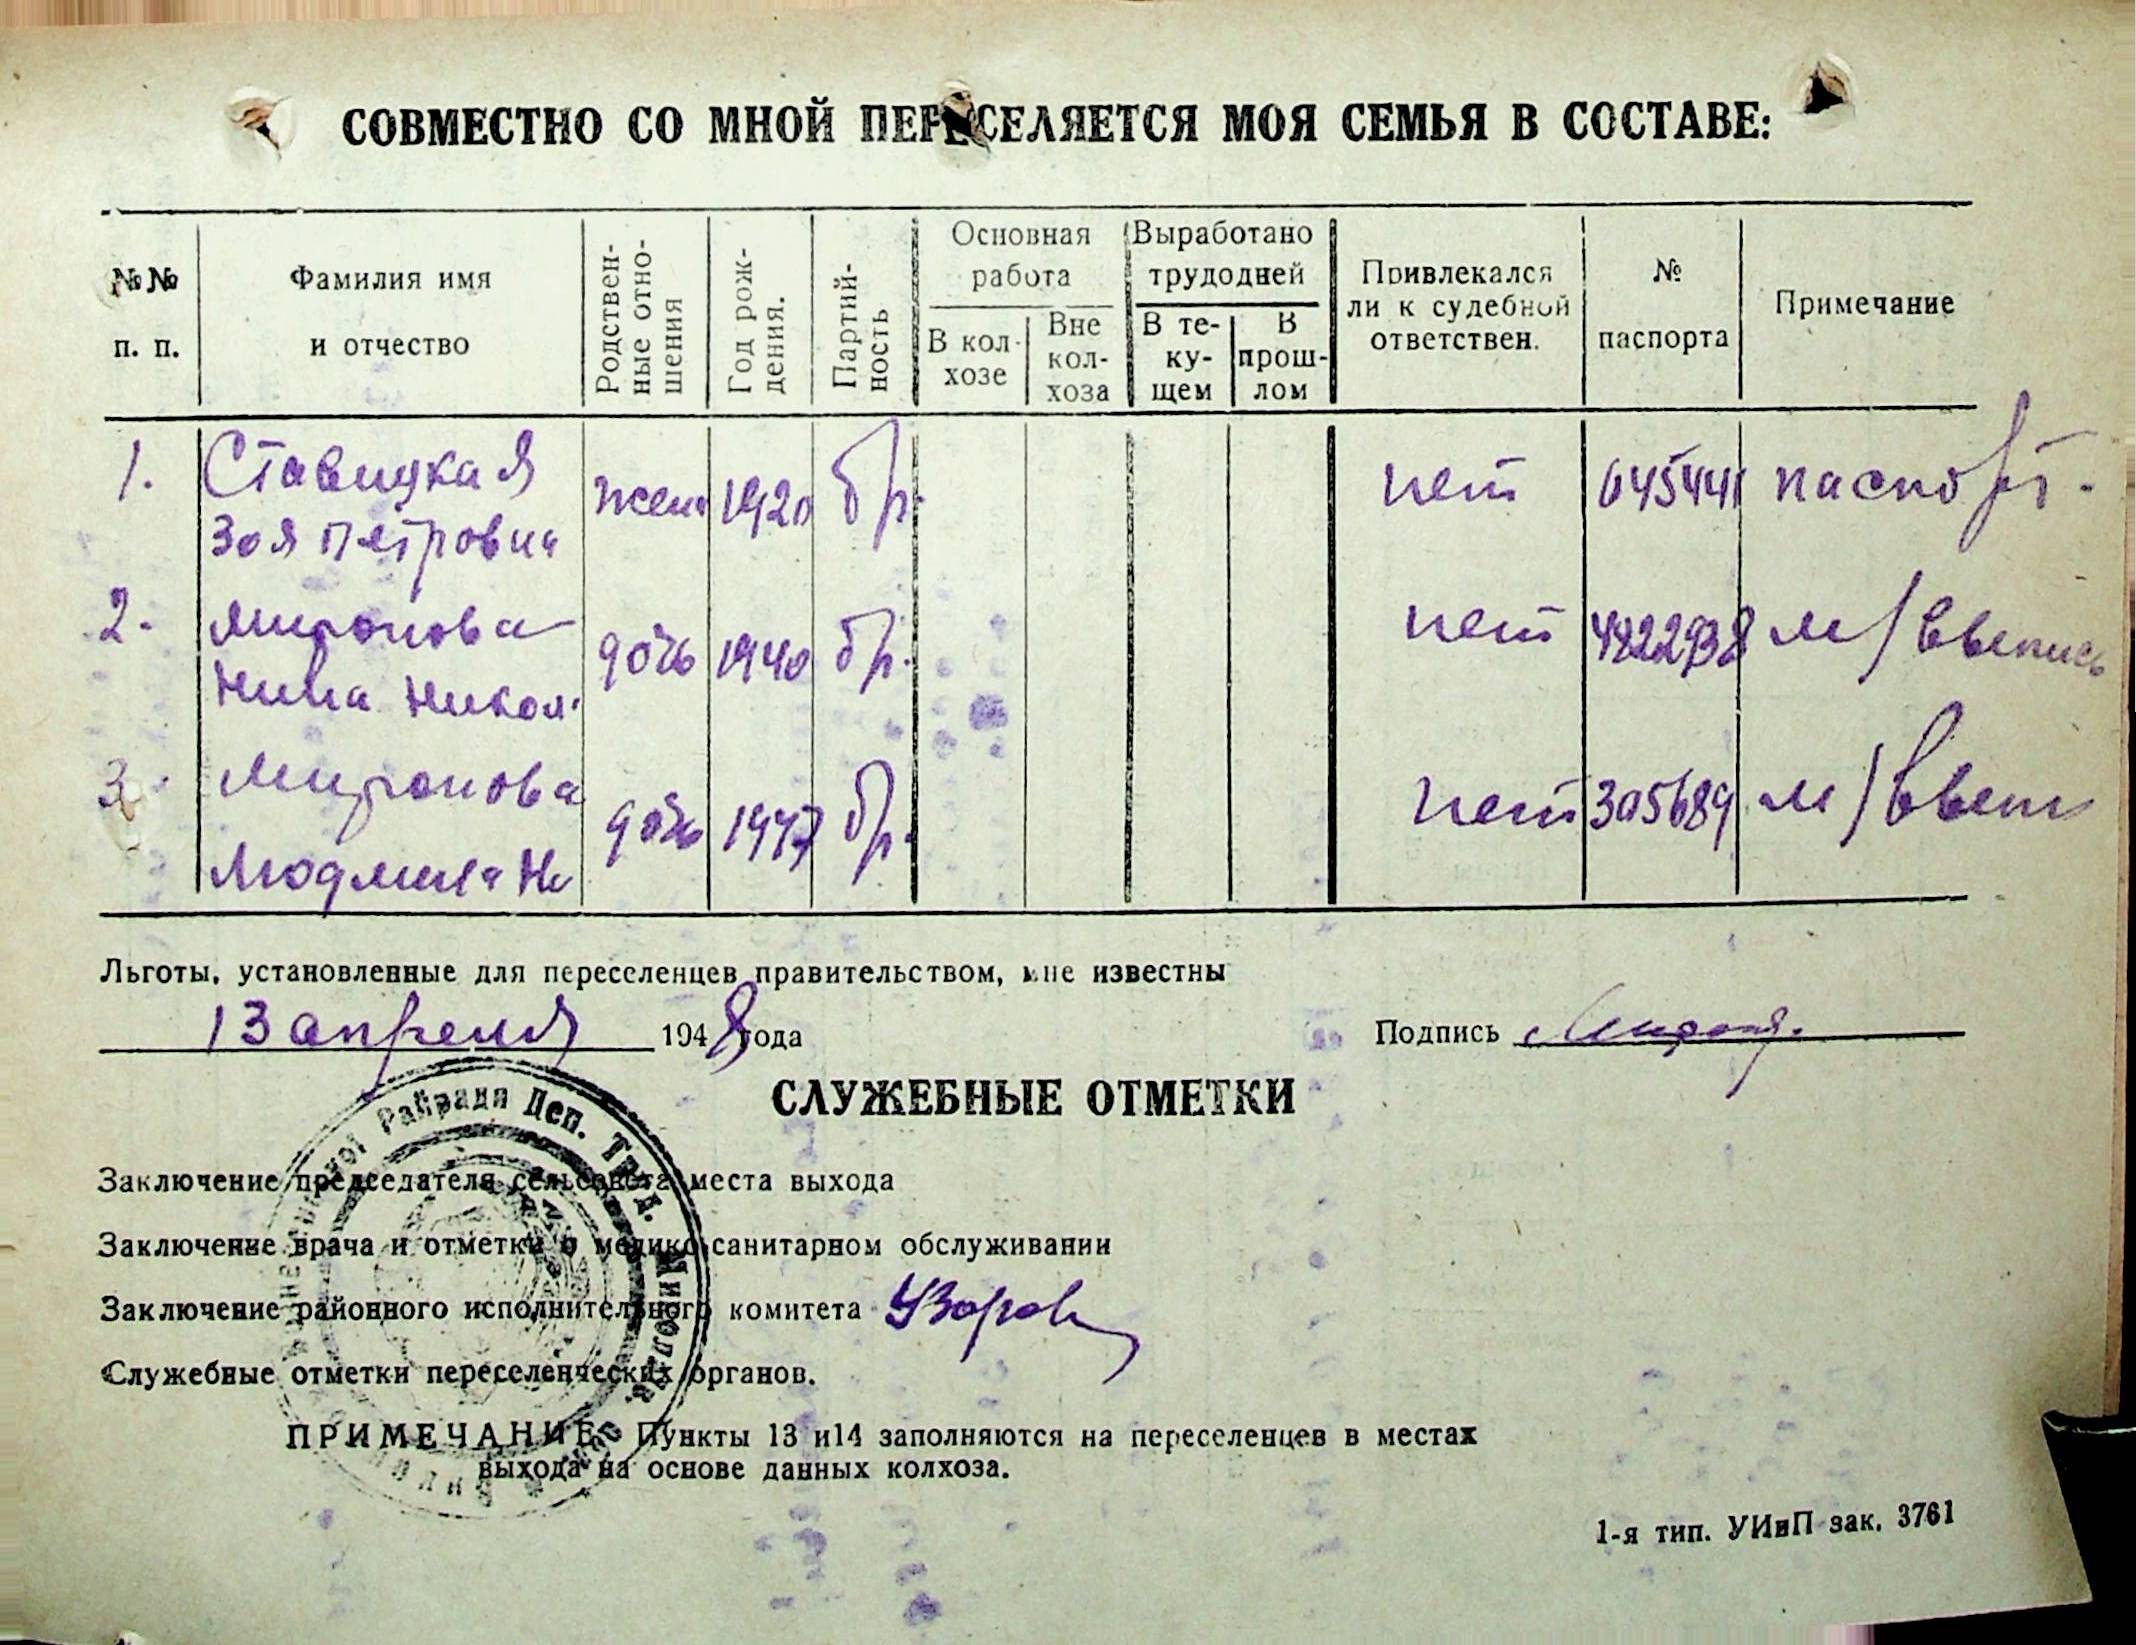 СОВМЕСТНО СО МНОЙ ПЕРЕСЕЛЯЕТСЯ МОЯ СЕМЬЯ В СОСТАВЕ:
№№ п. п.
Фамилия имя и отчество
Родствен-ные отно-шения
Год рож-дения.
Партий-ность
Основная работа
В кол-хозе
Вне кол-хоза
Выработано трудодней
В те-ку-щем
В прош-лом
Привлекался ли к судебной ответствен.
№ паспорта
Примечание
1. Ставицкая Зоя Петровна жена 1920 бр. нет 645441 паспорт.
2. Миронова Нина Никол. дочь 1940 бр. нет 4422938 м/
3. Миронова Людмила Ни дочь 1947 бр. нет 305689 м/
Льготы, установленные для переселенцев правительством, мне известны
13 апреля 1948 года
Подпись
СЛУЖЕБНЫЕ ОТМЕТКИ
Райради Деп. Труд. Микол
Заключение председателя сельсовета места выхода
Заключение врача и отметки о медико-санитарном обслуживании
Заключение районного исполнительного комитета
Служебные отметки переселенческих органов.
ПРИМЕЧАНИЕ: Пункты 13 и14 заполняются на переселенцев в местах
выхода на основе данных колхоза.
1-я тип. УИиП зак. 3761